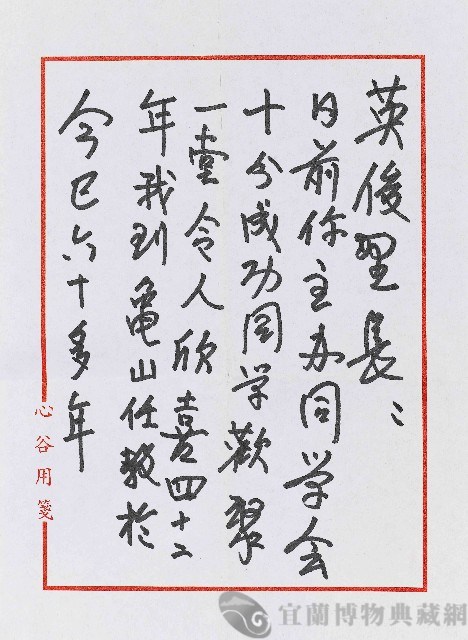 英俊里長：
日前你主办同学会
十分成功同学歡聚
一堂令人欣喜四十二
年我到龜山任教於
今已六十多年
心谷用箋
宜蘭博物典藏網